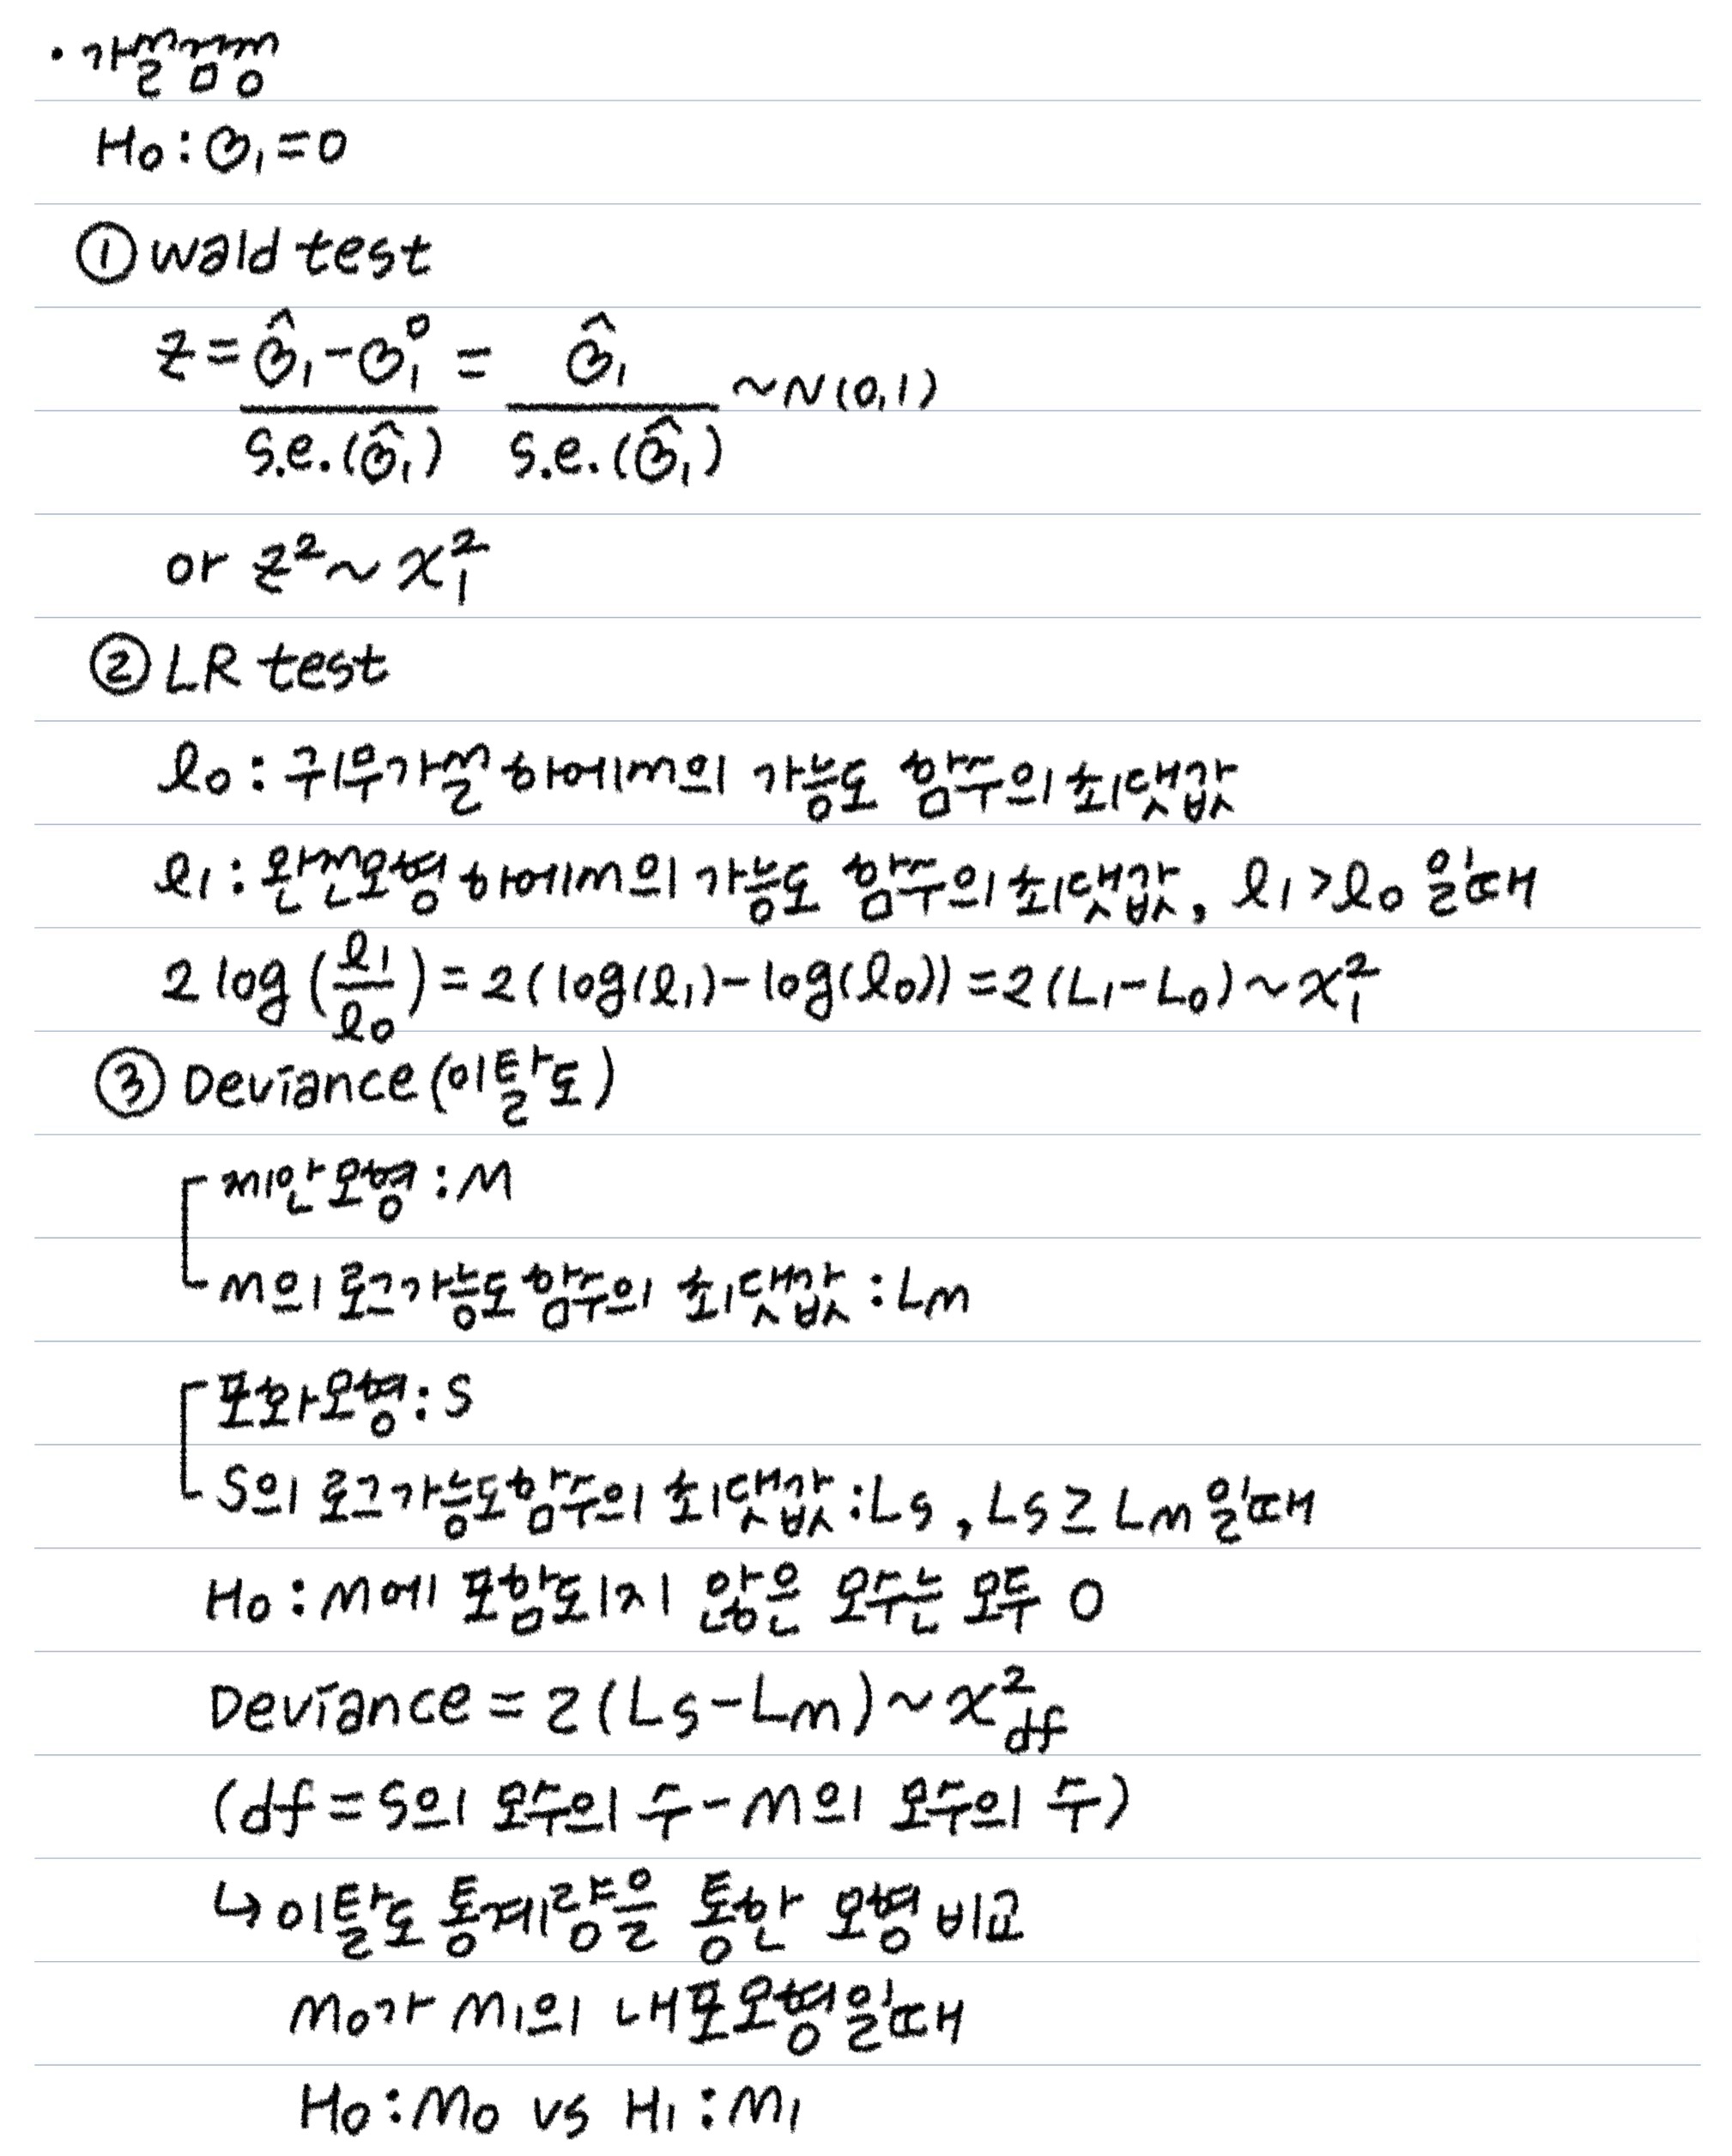 · 가설검정
H₀ : β₁ = 0
① Wald test
z = (β̂₁ - β₁⁰) / s.e.(β̂₁) = β̂₁ / s.e.(β̂₁) ~ N(0,1)
or z² ~ χ²₁
② LR test
ℓ₀ : 귀무가설 하에서의 가능도 함수의 최댓값
ℓ₁ : 완전모형 하에서의 가능도 함수의 최댓값, ℓ₁ > ℓ₀ 일 때
2 log(ℓ₁/ℓ₀) = 2(log(ℓ₁) - log(ℓ₀)) = 2(L₁ - L₀) ~ χ²₁
③ Deviance (이탈도)
제안모형 : M
M의 로그가능도함수의 최댓값 : Lm
포화모형 : S
S의 로그가능도함수의 최댓값 : Ls, Ls ≥ Lm 일 때
H₀ : M에 포함되지 않은 모수는 모두 0
Deviance = 2(Ls - Lm) ~ χ²df
(df = S의 모수의 수 - M의 모수의 수)
↳ 이탈도 통계량을 통한 모형 비교
M₀가 M₁의 내포모형일 때
H₀ : M₀ vs H₁ : M₁